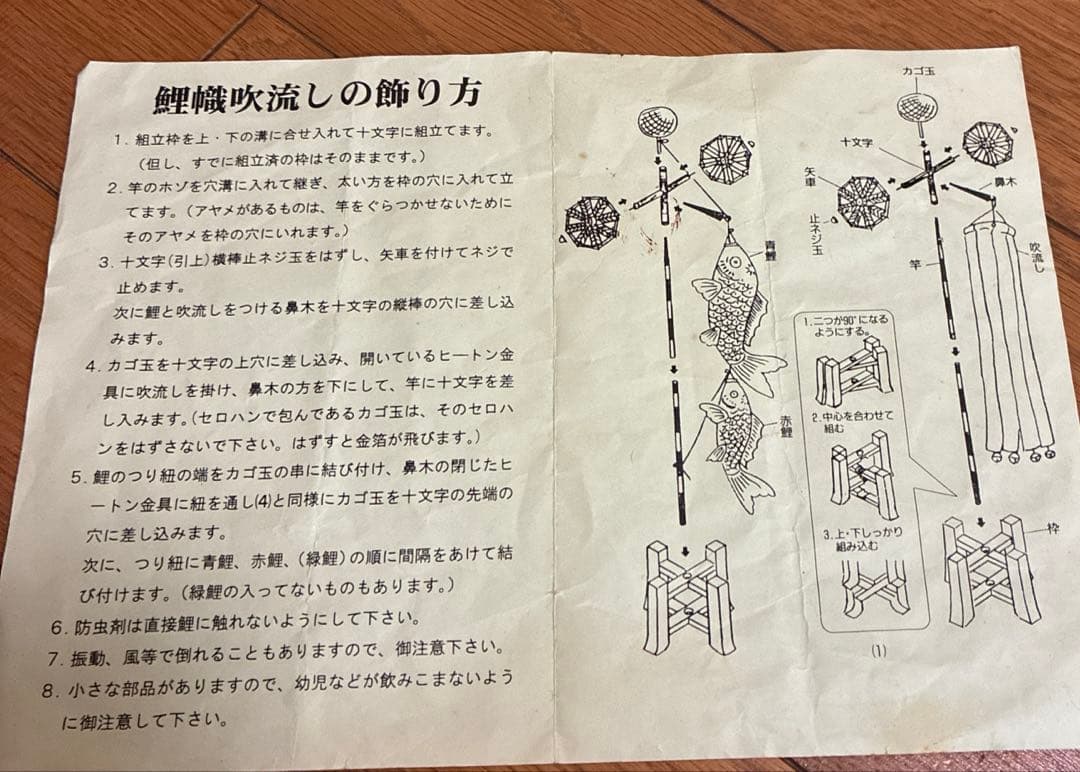 鯉幟吹流しの飾り方
1. 組立枠を上・下の溝に合せ入れて十文字に組立てます。
(但し、すでに組立済の枠はそのままです。)
2. 竿のホゾを穴溝に入れて継ぎ、太い方を枠の穴に入れて立
てます。(アヤメがあるものは、竿をぐらつかせないために
そのアヤメを枠の穴にいれます。)
3. 十文字(引上)横棒止ネジ玉をはずし、矢車を付けてネジで
止めます。
次に鯉と吹流しをつける鼻木を十文字の縦棒の穴に差し込
みます。
4. カゴ玉を十文字の上穴に差し込み、開いているヒートン金
具に吹流しを掛け、鼻木の方を下にして、竿に十文字を差
し入みます。(セロハンで包んであるカゴ玉は、そのセロハ
ンをはずさないで下さい。はずすと金箔が飛びます。)
5. 鯉のつり紐の端をカゴ玉の串に結び付け、鼻木の閉じたヒ
ートン金具に紐を通し(4)と同様にカゴ玉を十文字の先端の
穴に差し込みます。
次に、つり紐に青鯉、赤鯉、(緑鯉)の順に間隔をあけて結
び付けます。(緑鯉の入ってないものもあります。)
6. 防虫剤は直接鯉に触れないようにして下さい。
7. 振動、風等で倒れることもありますので、御注意下さい。
8. 小さな部品がありますので、幼児などが飲みこまないよう
に御注意して下さい。
青鯉
赤鯉
カゴ玉
十文字
矢車
鼻木
止ネジ玉
吹流し
竿
1. 二つが90°になる
ようにする。
2. 中心を合わせて
組む
3. 上・下しっかり
組み込む
枠
(1)